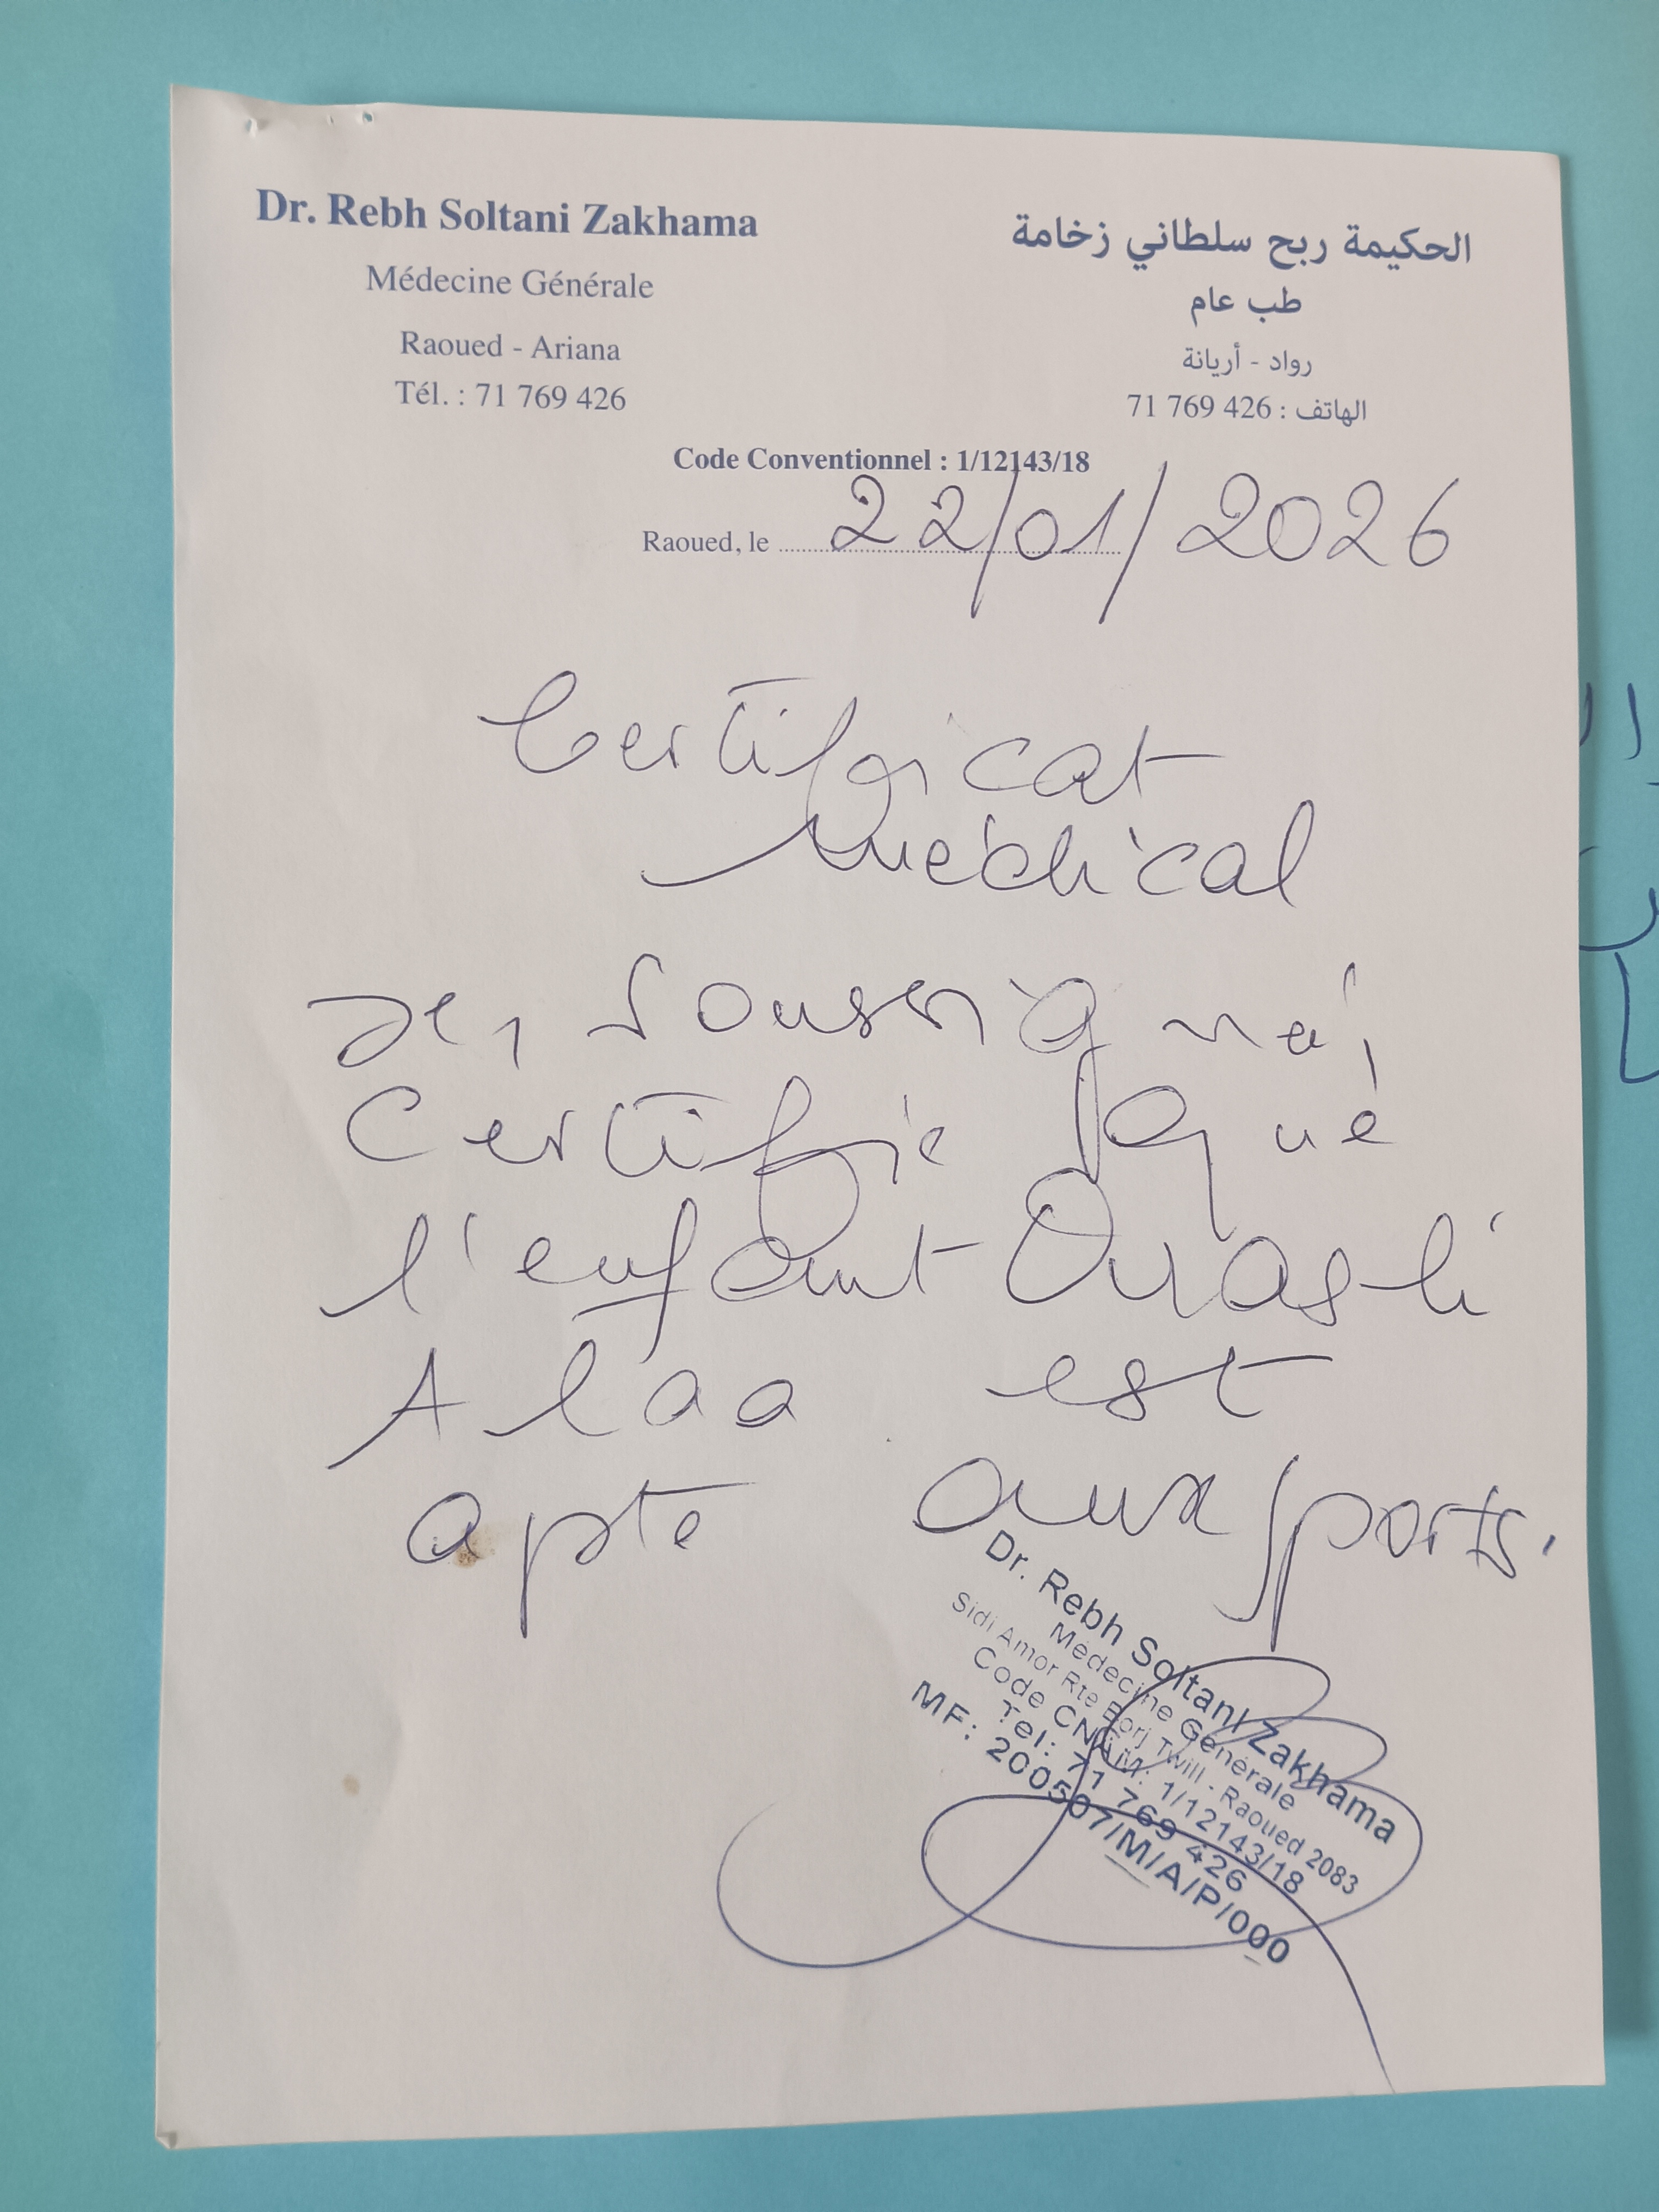 Dr. Rebh Soltani Zakhama
Médecine Générale
Raoued - Ariana
Tél. : 71 769 426
الحكيمة ربح سلطاني زخامة
طب عام
رواد - أريانة
الهاتف : 426 769 71
Code Conventionnel : 1/12143/18
Raoued, le 22/01/2026
Certificat
Médical
Je, soussigné,
certifie que
l'enfant Ouasli
Alaa est
apte aux sports.
Dr. Rebh Soltani Zakhama
Médecine Générale
Sidi Amor Rte Borj Twill - Raoued 2083
Code CNAM: 1/12143/18
Tel: 71 769 426
MF: 200507/M/A/P/000